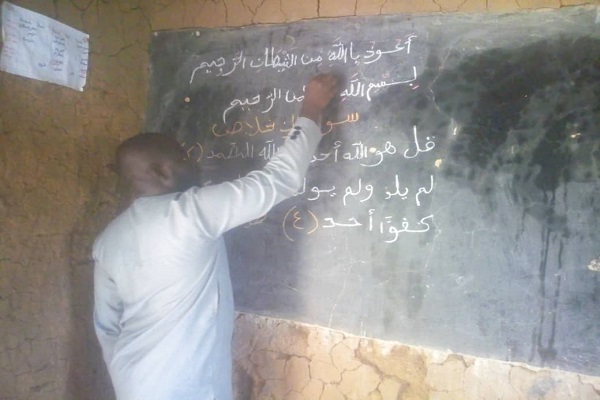 أعوذ باالله من الشيطان الرجيم
بسم الله الرحيم
سورة خلاص
قل هو الله أحد الله الصمد (٢)
لم يلد ولم يو
كفوا أحد (٤)